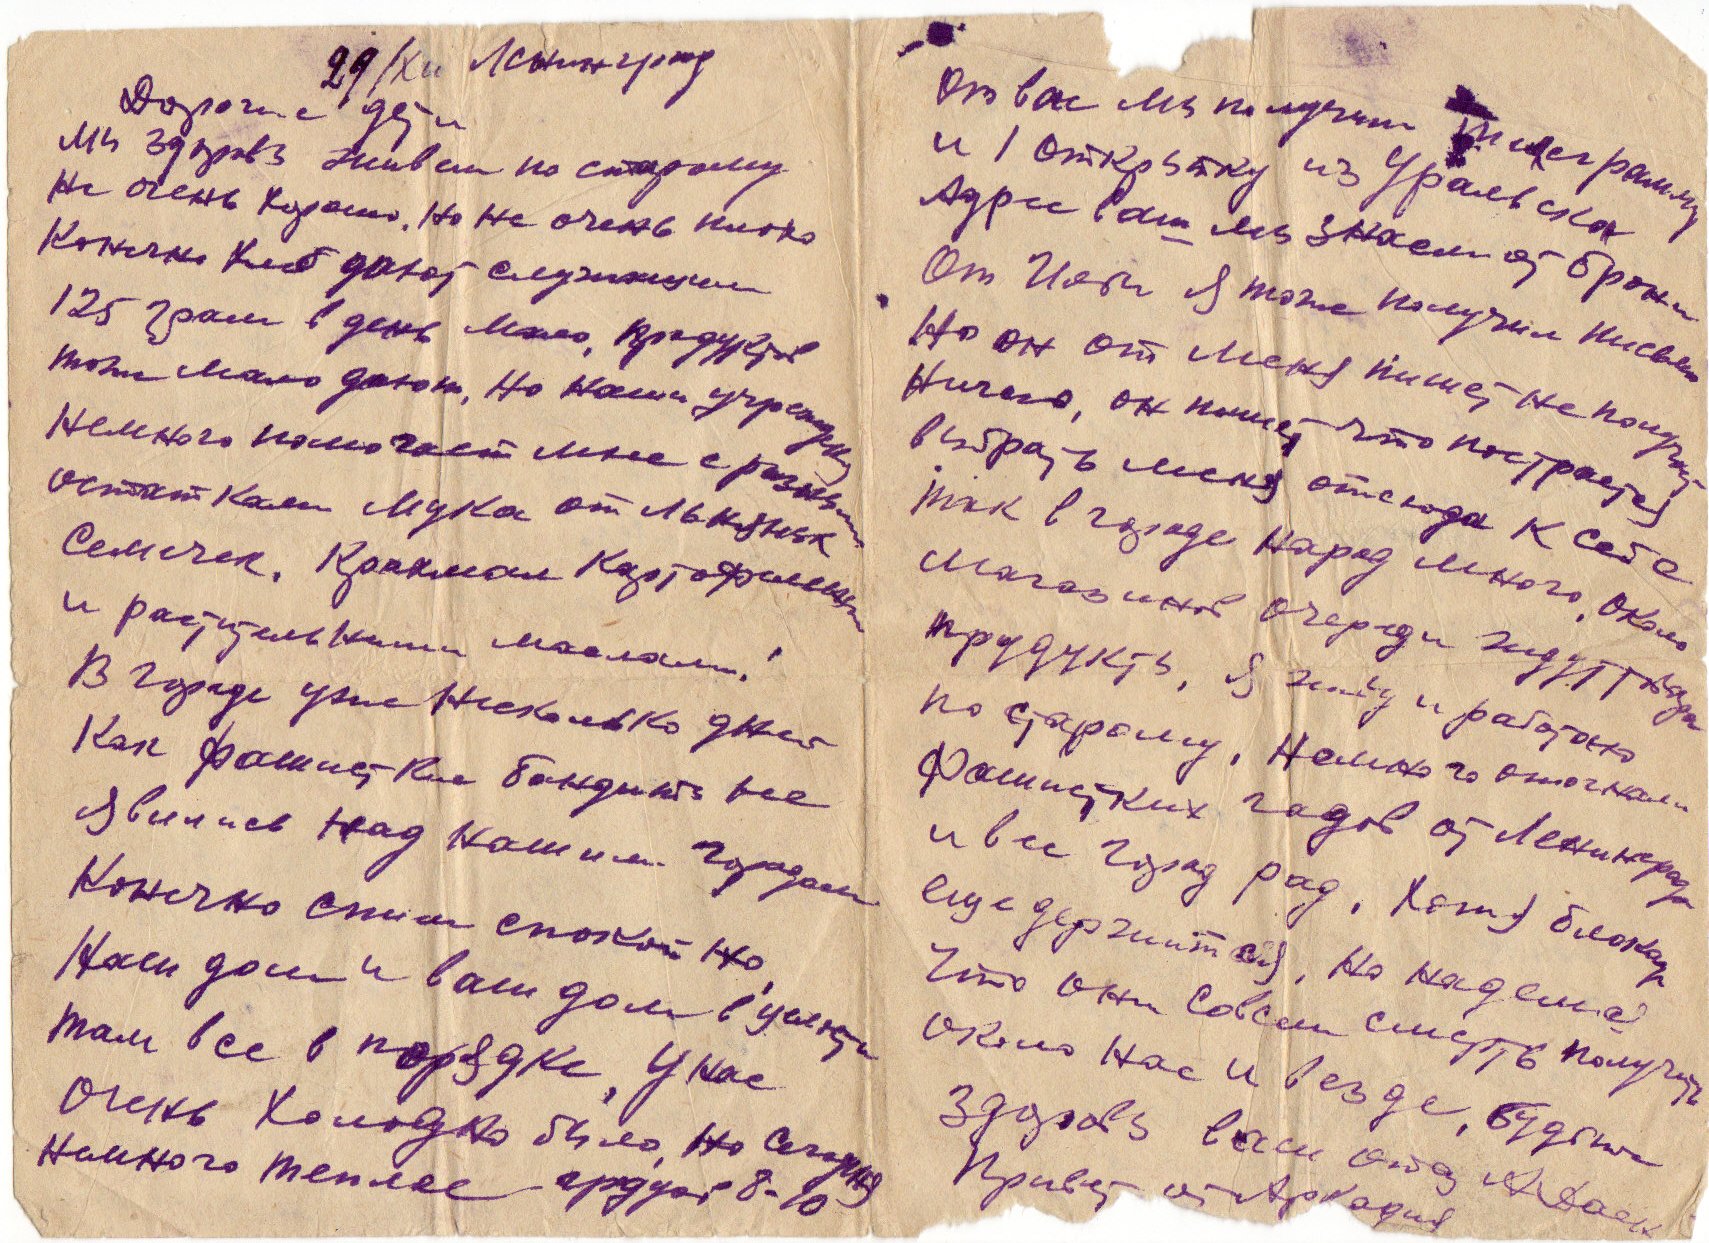 29/XII Ленинград
Дорогие дети
Мы здоровы живем по старому
Не очень хорошо, но не очень плохо
Конечно хлеб дают служащим
125 грам в день мало, продуктов
тоже мало дают, но наши учрежден
немного помогает мне с разными
остатками мука от льняных
семечек, крахмал картофельный
и растительными маслами!
В городе уже несколько дней
как фашистские бандиты не
явились над нашим городом
Конечно спим спокойно,
Наш дом и ваш дом в
там все в порядке, у нас
очень холодно было, но сегодня
немного теплее градусов 8-10
От вас мы получили телеграмму
и 1 открытку из Уральска
Адрес ваш мы знаем от Брони
От я тоже получил письмо
Но он от меня пишет не получ
ничего, он пишет что постарается
выбрать меня отсюда к себе
так в городе народ много, около
магазинов очереди ждут когда
прудукты, я живу и работаю
по старому, немного отогнали
фашистких гадов от Ленинграда
и все город рад, хотя блокада
еще держится, но надеемся
что они совсем смерть получить
около нас и везде, будьте
здоровы ваш отец
Привет от Аркадия